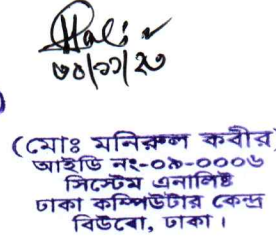 ৩০/১১/২০
(মোঃ মনিরুল কবীর)
আইডি নং-০৯-০০০৬
সিস্টেম এনালিষ্ট
ঢাকা কম্পিউটার কেন্দ্র
বিউবো, ঢাকা।